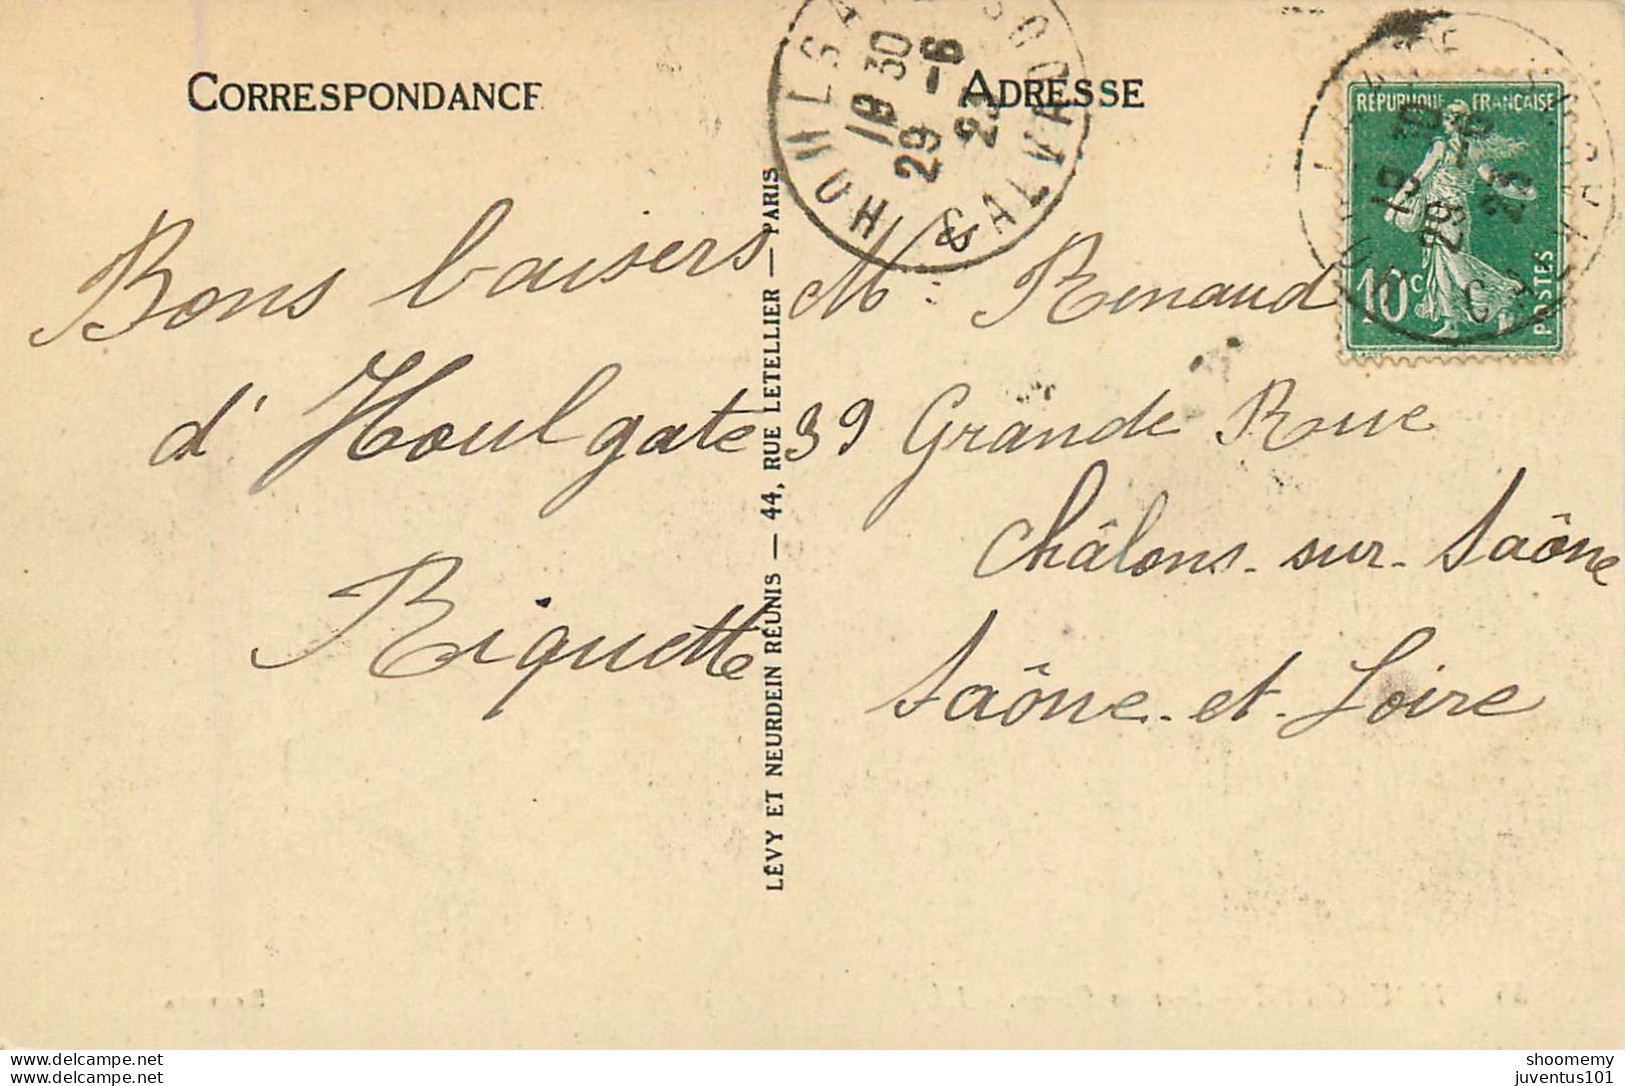 CORRESPONDANCE
Bons baisers
d'Houlgate
Riquette
LÉVY ET NEURDEIN RÉUNIS — 44, RUE LETELLIER — PARIS
ADRESSE
18 30
29 -6
23
CALVADOS
RÉPUBLIQUE FRANÇAISE
10c
POSTES
M: Renaud
39 Grande Rue
Châlons-sur-Saône
Saône-et-Loire
www.delcampe.net
www.delcampe.net
shoomemy
juventus101